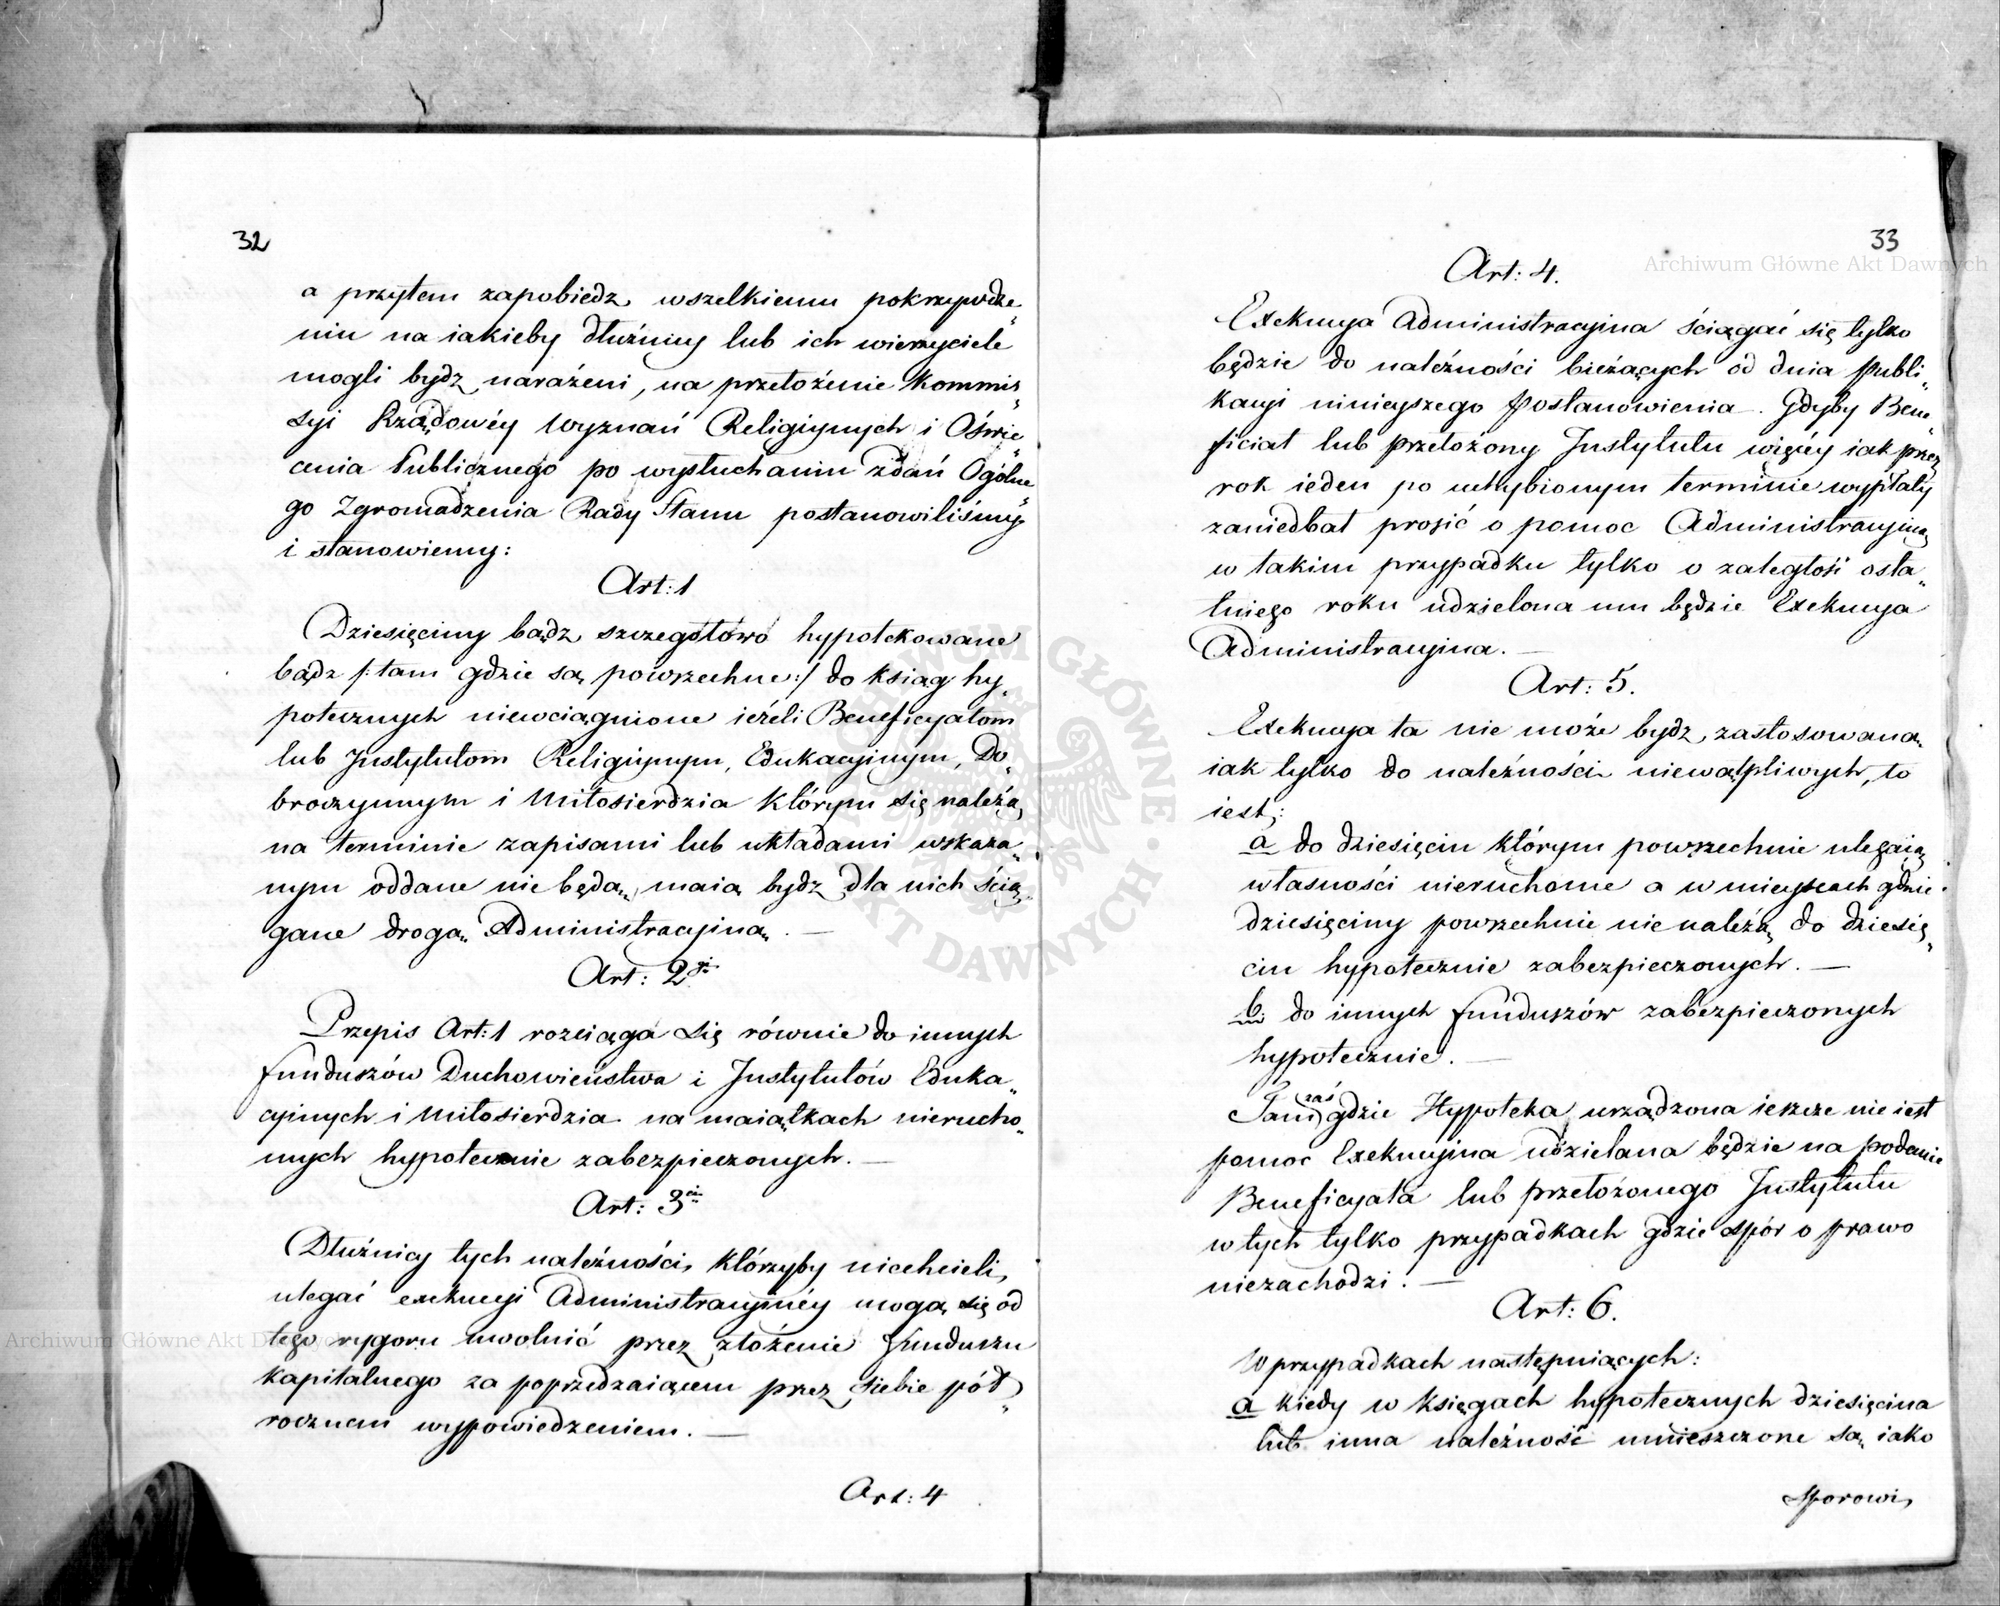 32
a przytem zapobiedz wszelkiemu pokrzywdze„
niu na iakieby dłużnicy lub ich wierzyciele
mogli bydz narażeni, na przełożenie Kommis„
syi Rządowéy Wyznań Religiynych i Oświe„
cenia Publicznego po wysłuchaniu zdań Ogólne„
go Zgromadzenia Rady Stanu postanowiliśmy
i stanowiemy:
Art: 1
Dziesięciny bądz szczegółowo hypotekowane
bądz /: tam gdzie są powszechne :/ do ksiąg hy„
potecznych niewciągnione ieżeli Beneficyatom
lub Instytutom Religiynym, Edukacyinym, Do„
broczynnym i Miłosierdzia którym się należą
na terminie zapisami lub układami wskaza„
nym oddane nie będą, maią bydz dla nich ścią„
gane drogą Administracyiną. —
Art: 2gi
Przepis Art: 1 rozciąga się równie do innych
funduszów Duchowieństwa i Instytutów Eduka„
cyinych i Miłosierdzia na maiątkach nierucho„
mych hypotecznie zabezpieczonych. —
Art: 3ci
Dłużnicy tych należności, którzyby niechcieli
ulegać exekucyi Administracyinéy mogą się od
tego rygoru uwolnić przez złożenie funduszu
kapitalnego za poprzedzaiącem przez siebie pół„
rocznem wypowiedzeniem. —
Art: 4
33
Art: 4.
Exekucya Administracyina ściągać się tylko
będzie do należności bieżących od dnia publi„
kacyi ninieyszego postanowienia. Gdyby Bene„
ficiat lub przełożony Instytutu więcéy iak przez
rok ieden po uchybionym terminie wypłaty
zaniedbał prosić o pomoc Administracyiną
w takim przypadku tylko o zaległość osta„
tniego roku udzielona mu będzie Exekucya
Administracyina. —
Art: 5.
Exekucya ta nie może bydz zastosowana
iak tylko do należności niewątpliwych, to
iest:
a do dziesięcin którym powszechnie ulegaią
własności nieruchome a w mieyscach gdzie
dziesięciny powszechnie nie należą, do dziesię„
cin hypotecznie zabezpieczonych. —
b. do innych funduszów zabezpieczonych
hypotecznie. —
Tam zaś gdzie Hypoteka urządzona ieszcze nie iest
pomoc Exekucyina udzielana będzie na podanie
Beneficyata lub przełożonego Instytutu
w tych tylko przypadkach gdzie spór o prawo
niezachodzi. —
Art: 6.
W przypadkach następuiących:
a kiedy w księgach hypotecznych dziesięcina
lub inna należność umieszczone są iako
sporowi
Archiwum Główne Akt Dawnych
Archiwum Główne Akt Dawnych
ARCHIWUM GŁÓWNE · AKT DAWNYCH ·